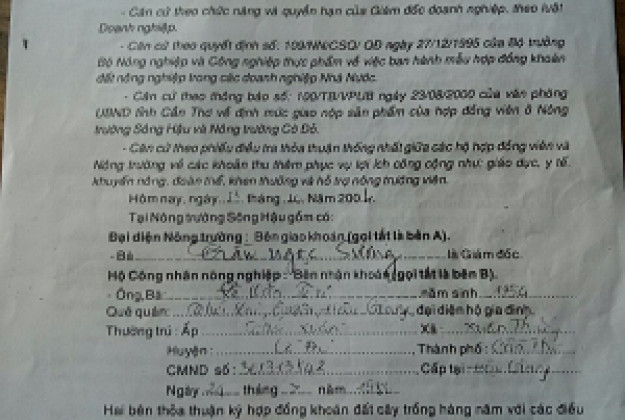 - Căn cứ theo chức năng và quyền hạn của Giám đốc doanh nghiệp, theo luật
Doanh nghiệp.
- Căn cứ theo quyết định số: 109/NN/CSQ/ QĐ ngày 27/12/1995 của Bộ trưởng
Bộ Nông nghiệp và Công nghiệp thực phẩm về việc ban hành mẫu hợp đồng khoán
đất nông nghiệp trong các doanh nghiệp Nhà Nước.
- Căn cứ theo thông báo số: 100/TB/VPUB ngày 23/08/2000 của văn phòng
UBND tỉnh Cần Thơ về định mức giao nộp sản phẩm của hợp đồng viên ở Nông
trường Sông Hậu và Nông trường Cờ Đỏ.
- Căn cứ theo phiếu điều tra thỏa thuận thống nhất giữa các hộ hợp đồng viên và
Nông trường về các khoản thu thêm phục vụ lợi ích công cộng như: giáo dục, y tế,
khuyến nông, đoàn thể, khen thưởng và hỗ trợ nông trường viên.
Hôm nay, ngày tháng Năm 200
Tại Nông trường Sông Hậu gồm có:
Đại diện Nông trường : Bên giao khoán (gọi tắt là bên A).
- Bà Trần Ngọc Sương là Giám đốc
Hộ Công nhân nông nghiệp : Bên nhận khoán (gọi tắt là bên B).
- Ông, Bà năm sinh 1954
Quê quán: Hậu Giang, đại diện hộ gia đình.
Thường trú : Ấp Xuân Xã : Xuân
Huyện : Thành phố : Cần Thơ
CMND số : Cấp tại Hậu Giang
Ngày 24 tháng năm
Hai bên thỏa thuận ký hợp đồng khoán đất cây trồng hàng năm với các điều